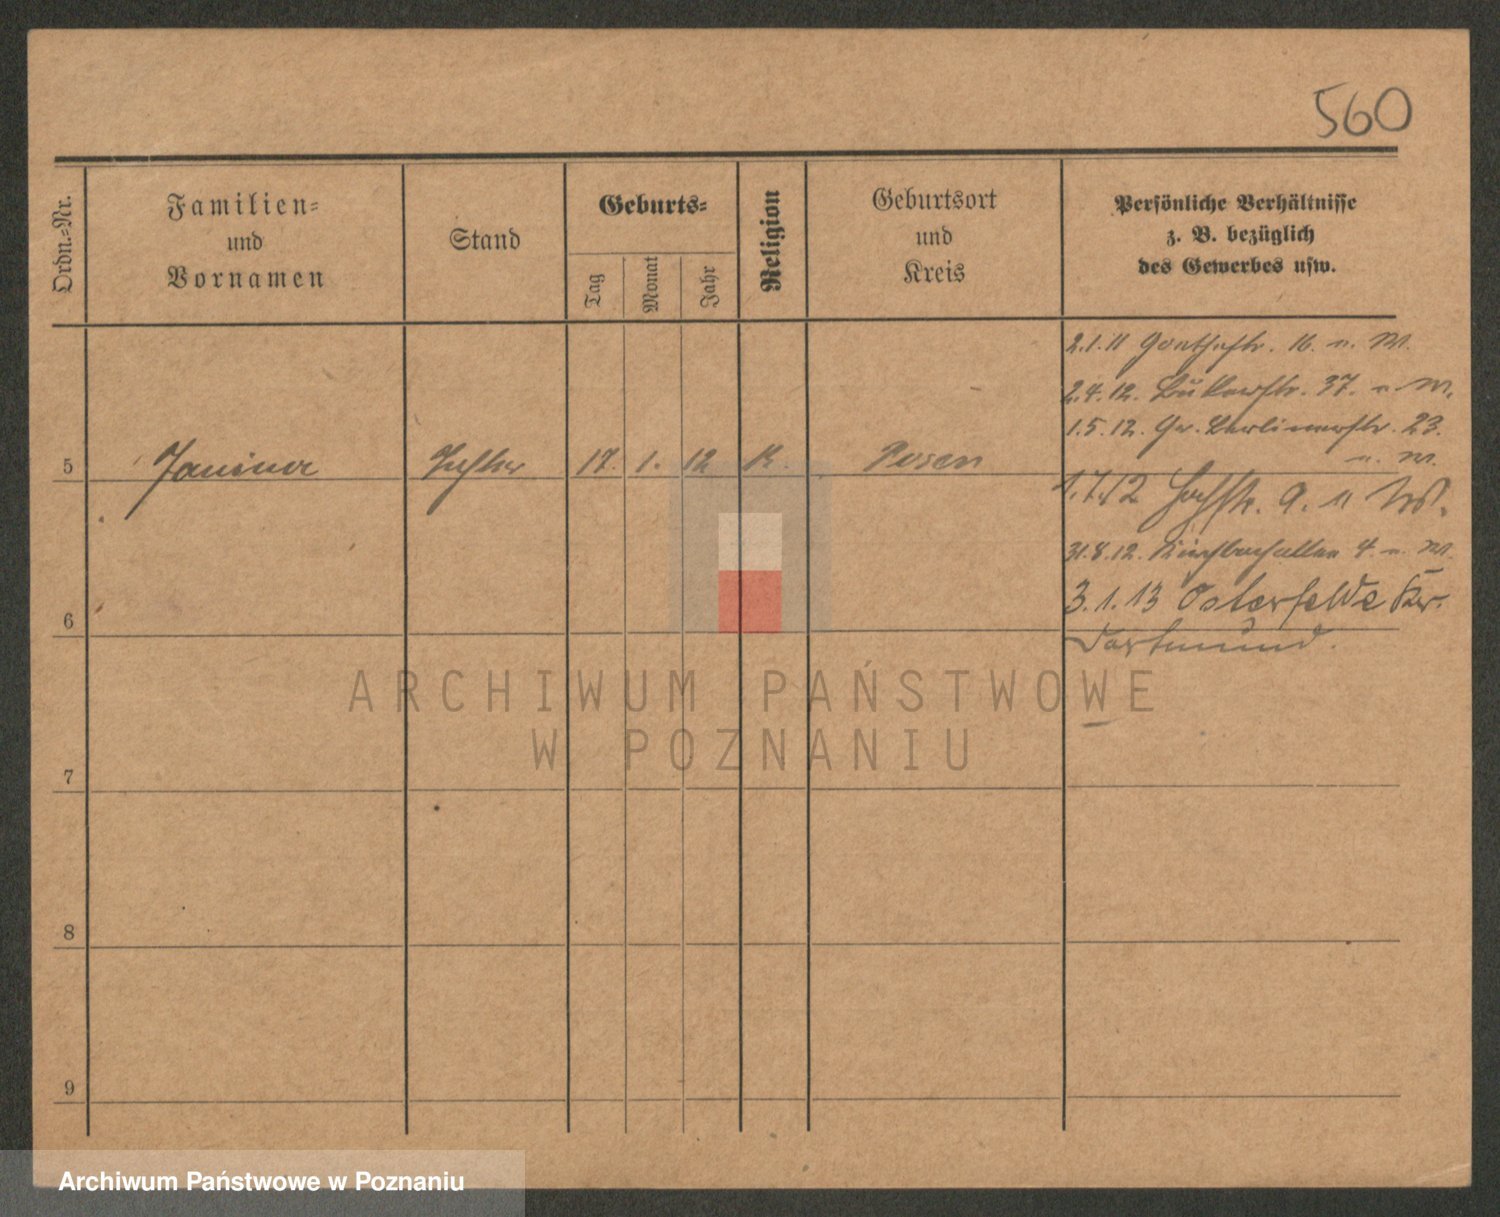 560
Ordn.-Nr.
Familien-
und
Vornamen
Stand
Geburts-
Tag
Monat
Jahr
Religion
Geburtsort
und
Kreis
Persönliche Verhältnisse
z. B. bezüglich
des Gewerbes usw.
2.1.11 Goethestr. 16. n. W.
2.4.12. Bükerstr. 37. n. W.
1.5.12. Gr. Berlinerstr. 23.
n. W.
5 Janina Tochter 17. 1. 12 K. Posen
1.7.12 Hochstr. 9. n W.
31.8.12. Kirchbachallee 4. n. W.
3.1.13 Osterfelde Kr.
6
Dortmund.
ARCHIWUM PAŃSTWOWE
W POZNANIU
7
8
9
Archiwum Państwowe w Poznaniu